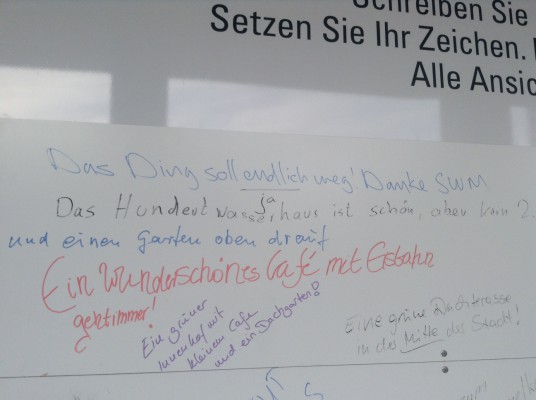 Schreiben Sie
Setzen Sie Ihr Zeichen.
Alle Ansic
Das Ding soll endlich weg! Danke SWM
ja
Das Hundertwasserhaus ist schön, aber kein 2.
und einen Garten oben drauf
Ein wunderschönes Café mit Eisbahn
geht immer!
Ein grüner
Innenhof mit
kleinem Cafe
und ein Dachgarten!
Eine grüne Dachterasse
in der Mitte der Stadt!